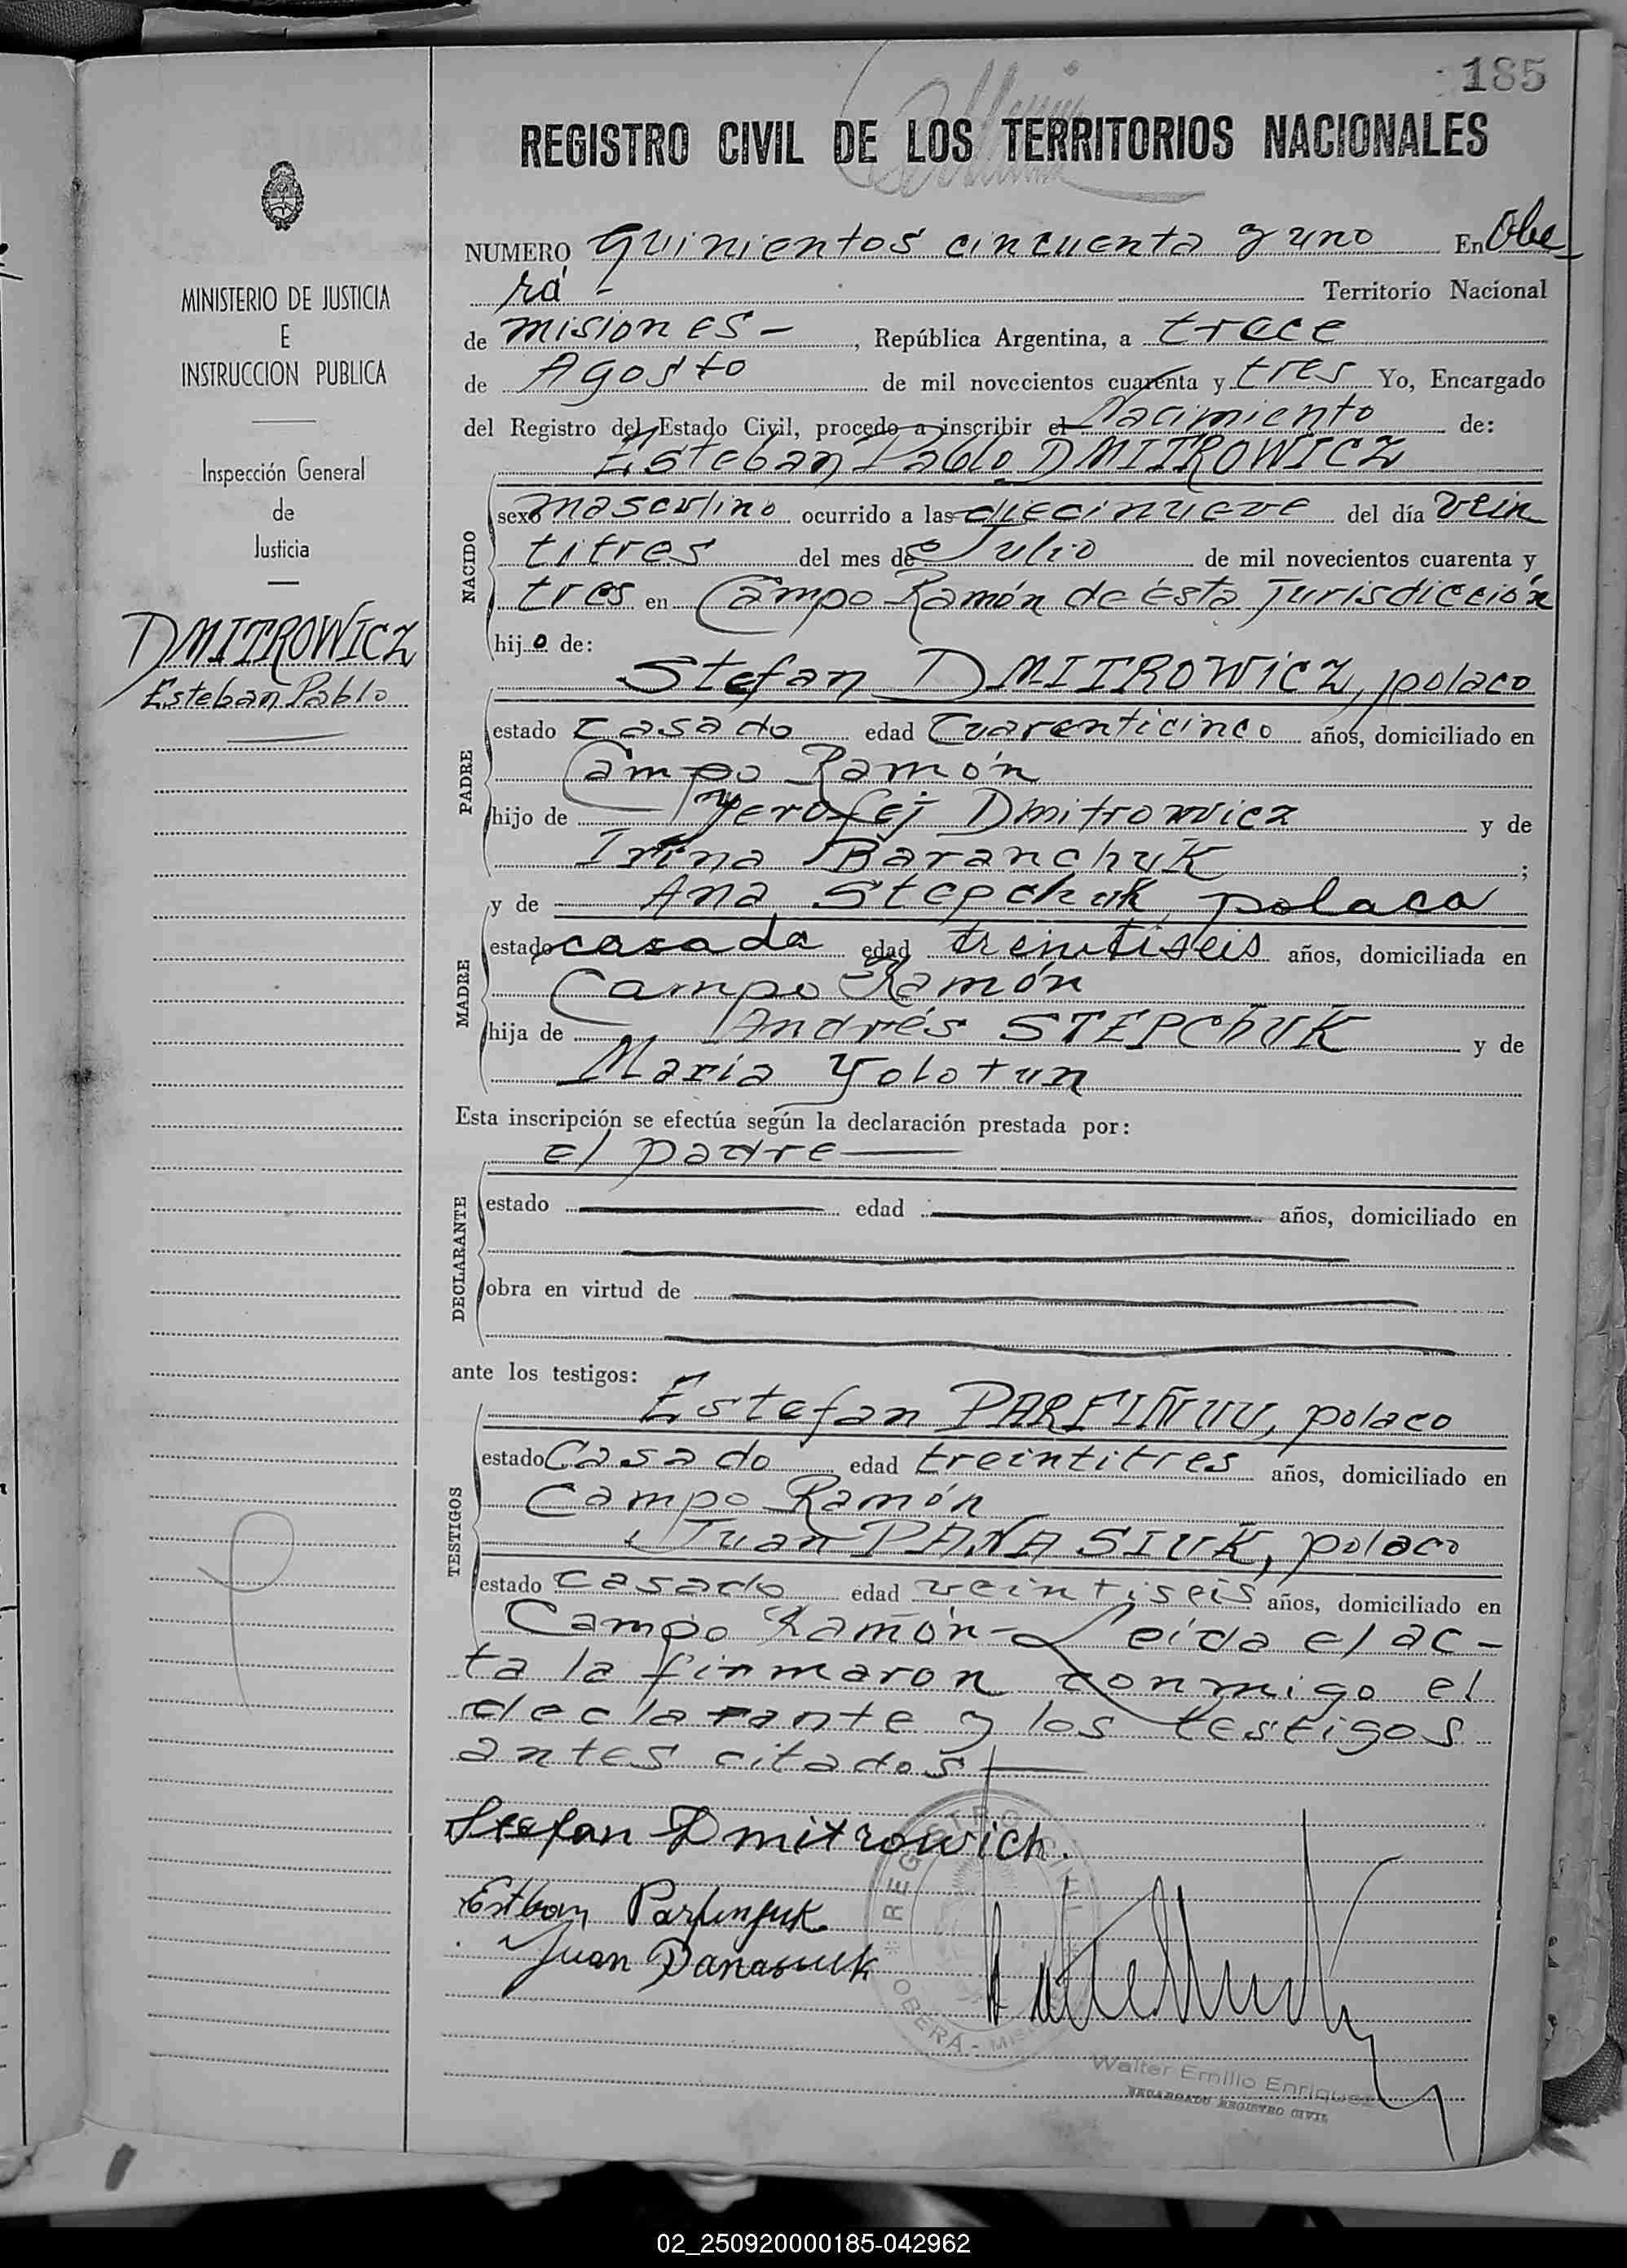 185
REGISTRO CIVIL DE LOS TERRITORIOS NACIONALES
MINISTERIO DE JUSTICIA
E
INSTRUCCION PUBLICA
Inspección General
de
Justicia
DMITROWICZ
Esteban Pablo
NUMERO Quinientos cincuenta y uno En Obe-
rá - Territorio Nacional
de misiones - , República Argentina, a trece
de Agosto de mil novecientos cuarenta y tres Yo, Encargado
del Registro del Estado Civil, procedo a inscribir el Nacimiento de:
Esteban Pablo DMITROWICZ
NACIDO
sexo masculino ocurrido a las diecinueve del día vein
titres del mes de Julio de mil novecientos cuarenta y
tres en Campo Ramón de ésta Jurisdicción
hijo de:
Stefan DMITROWICZ, polaco
PADRE
estado casado edad Cuarenticinco años, domiciliado en
Campo Ramón
hijo de Yerofej Dmitrowicz y de
Irina Baranchuk ;
y de Ana Stepchuk, polaca
MADRE
estado casada edad treintiseis años, domiciliada en
Campo Ramón
hija de Andrés STEPChUK y de
María Yolotun
Esta inscripción se efectúa según la declaración prestada por:
el padre
DECLARANTE
estado edad años, domiciliado en
obra en virtud de
ante los testigos:
Estefan , polaco
TESTIGOS
estado Casado edad treintitres años, domiciliado en
Campo Ramón
Juan PANASIUK, polaco
estado casado edad veintiseis años, domiciliado en
Campo Ramón - Leída el ac-
ta la firmaron conmigo el
declarante y los testigos
antes citados
Stefan Dmitrowich.
Estban
Juan Panasiuk
REGISTRO CIVIL
OBERÁ - MIS
Walter Emilio Enriquez
ENCARGADO REGISTRO CIVIL
02_250920000185-042962